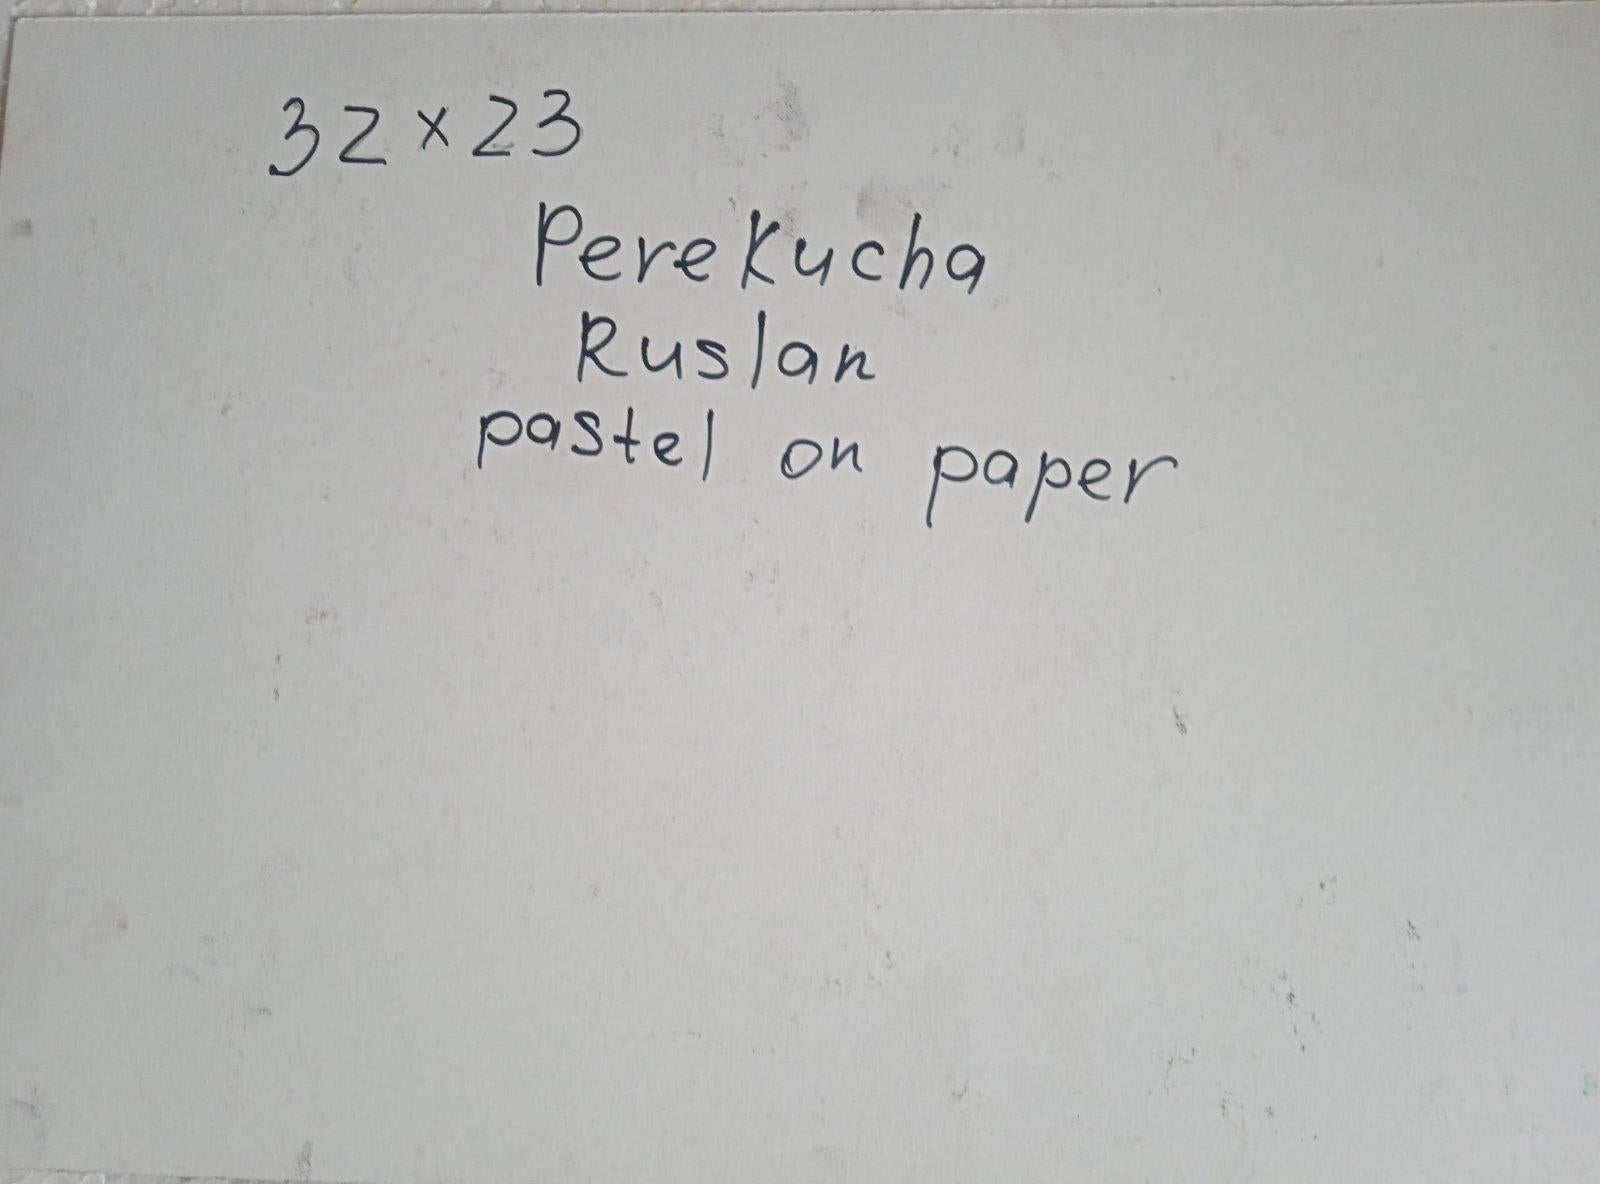 32 x 23
Perekucha
Ruslan
pastel on paper